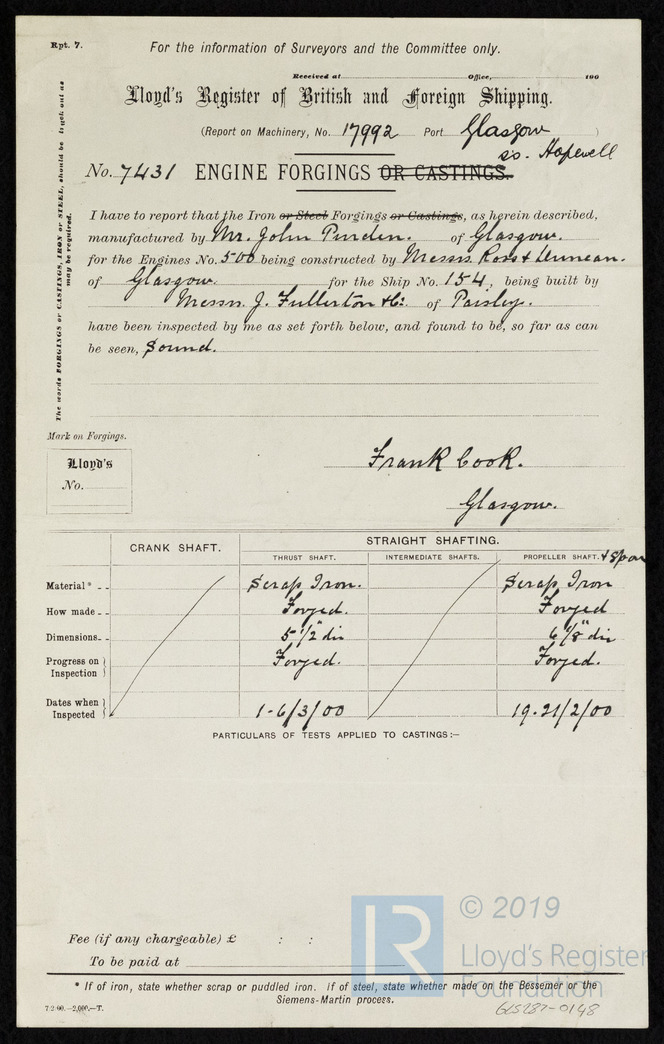 Rpt. 7.
For the information of Surveyors and the Committee only.
Received at Office, 190
Lloyd's Register of British and Foreign Shipping.
(Report on Machinery, No. 17992 Port Glasgow )
s.s. Hopewell
No. 7431 ENGINE FORGINGS OR CASTINGS.
I have to report that the Iron or Steel Forgings or Castings, as herein described,
manufactured by Mr. John Purden. of Glasgow.
for the Engines No. 500 being constructed by Messrs. Ross & Duncan.
of Glasgow. for the Ship No. 154, being built by
Messrs. J. Fullerton & Co. of Paisley.
have been inspected by me as set forth below, and found to be, so far as can
be seen, Sound.
The words FORGINGS or CASTINGS, IRON or STEEL, should be struck out as
may be required.
Mark on Forgings.
Lloyd's
No.
Frank Cook.
Glasgow.
CRANK SHAFT. STRAIGHT SHAFTING.
THRUST SHAFT. INTERMEDIATE SHAFTS. PROPELLER SHAFT. & Spare
Material* Scrap Iron. Scrap Iron
How made Forged. Forged
Dimensions 5 1/2" dia 6 1/8" dia
Progress on Inspection Forged. Forged.
Dates when Inspected 1-6/3/00 19.21/2/00
PARTICULARS OF TESTS APPLIED TO CASTINGS:—
Fee (if any chargeable) £ : :
To be paid at
* If of iron, state whether scrap or puddled iron. If of steel, state whether made on the Bessemer or the
Siemens-Martin process.
7.2.00.—2,000.—T.
LR
© 2019
Lloyd's Register
Foundation
GLS287-0148